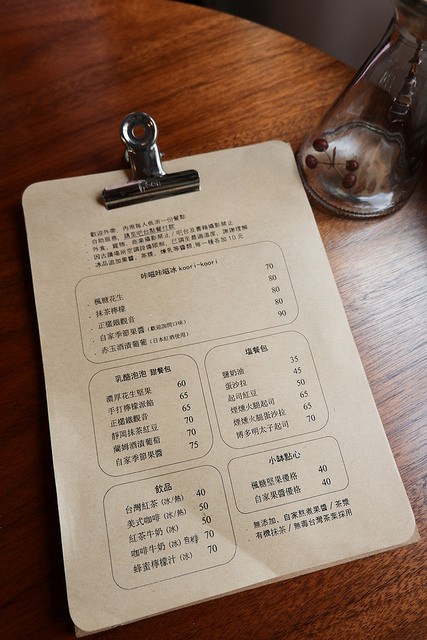 歡迎外帶，內用每人低消一份餐點
自助服務，請至吧台點餐付款
外食、寵物、商業攝影禁止／吧台及書籍攝影禁止
因古蹟場所空調設備限制，已調至最適溫度，謝謝理解
冰品追加果醬、茶漿、煉乳等醬類,每一種各加 10 元
咔嗞咔嗞冰 koori-koori
. 楓糖花生 70
. 抹茶檸檬 80
. 正欉鐵觀音 80
. 自家季節果醬 (歡迎詢問口味) 80
. 赤玉酒漬葡萄 (日本紅酒使用) 90
乳酪泡泡 甜餐包
濃厚花生堅果 60
手打檸檬派餡 65
正欉鐵觀音 65
靜岡抹茶紅豆 70
蘭姆酒漬葡萄 70
自家季節果醬 75
塩餐包
鹽奶油 35
蛋沙拉 45
起司紅豆 50
煙燻火腿起司 65
煙燻火腿蛋沙拉 65
博多明太子起司 70
飲品
台灣紅茶 (冰/熱) 40
美式咖啡 (冰/熱) 50
紅茶牛奶 (冰) 50
咖啡牛奶 (冰) 70
蜂蜜檸檬汁 (冰) 70
小缽點心
楓糖堅果優格 40
自家果醬優格 40
無添加、自家熬煮果醬／茶漿
有機抹茶／無毒台灣茶葉採用